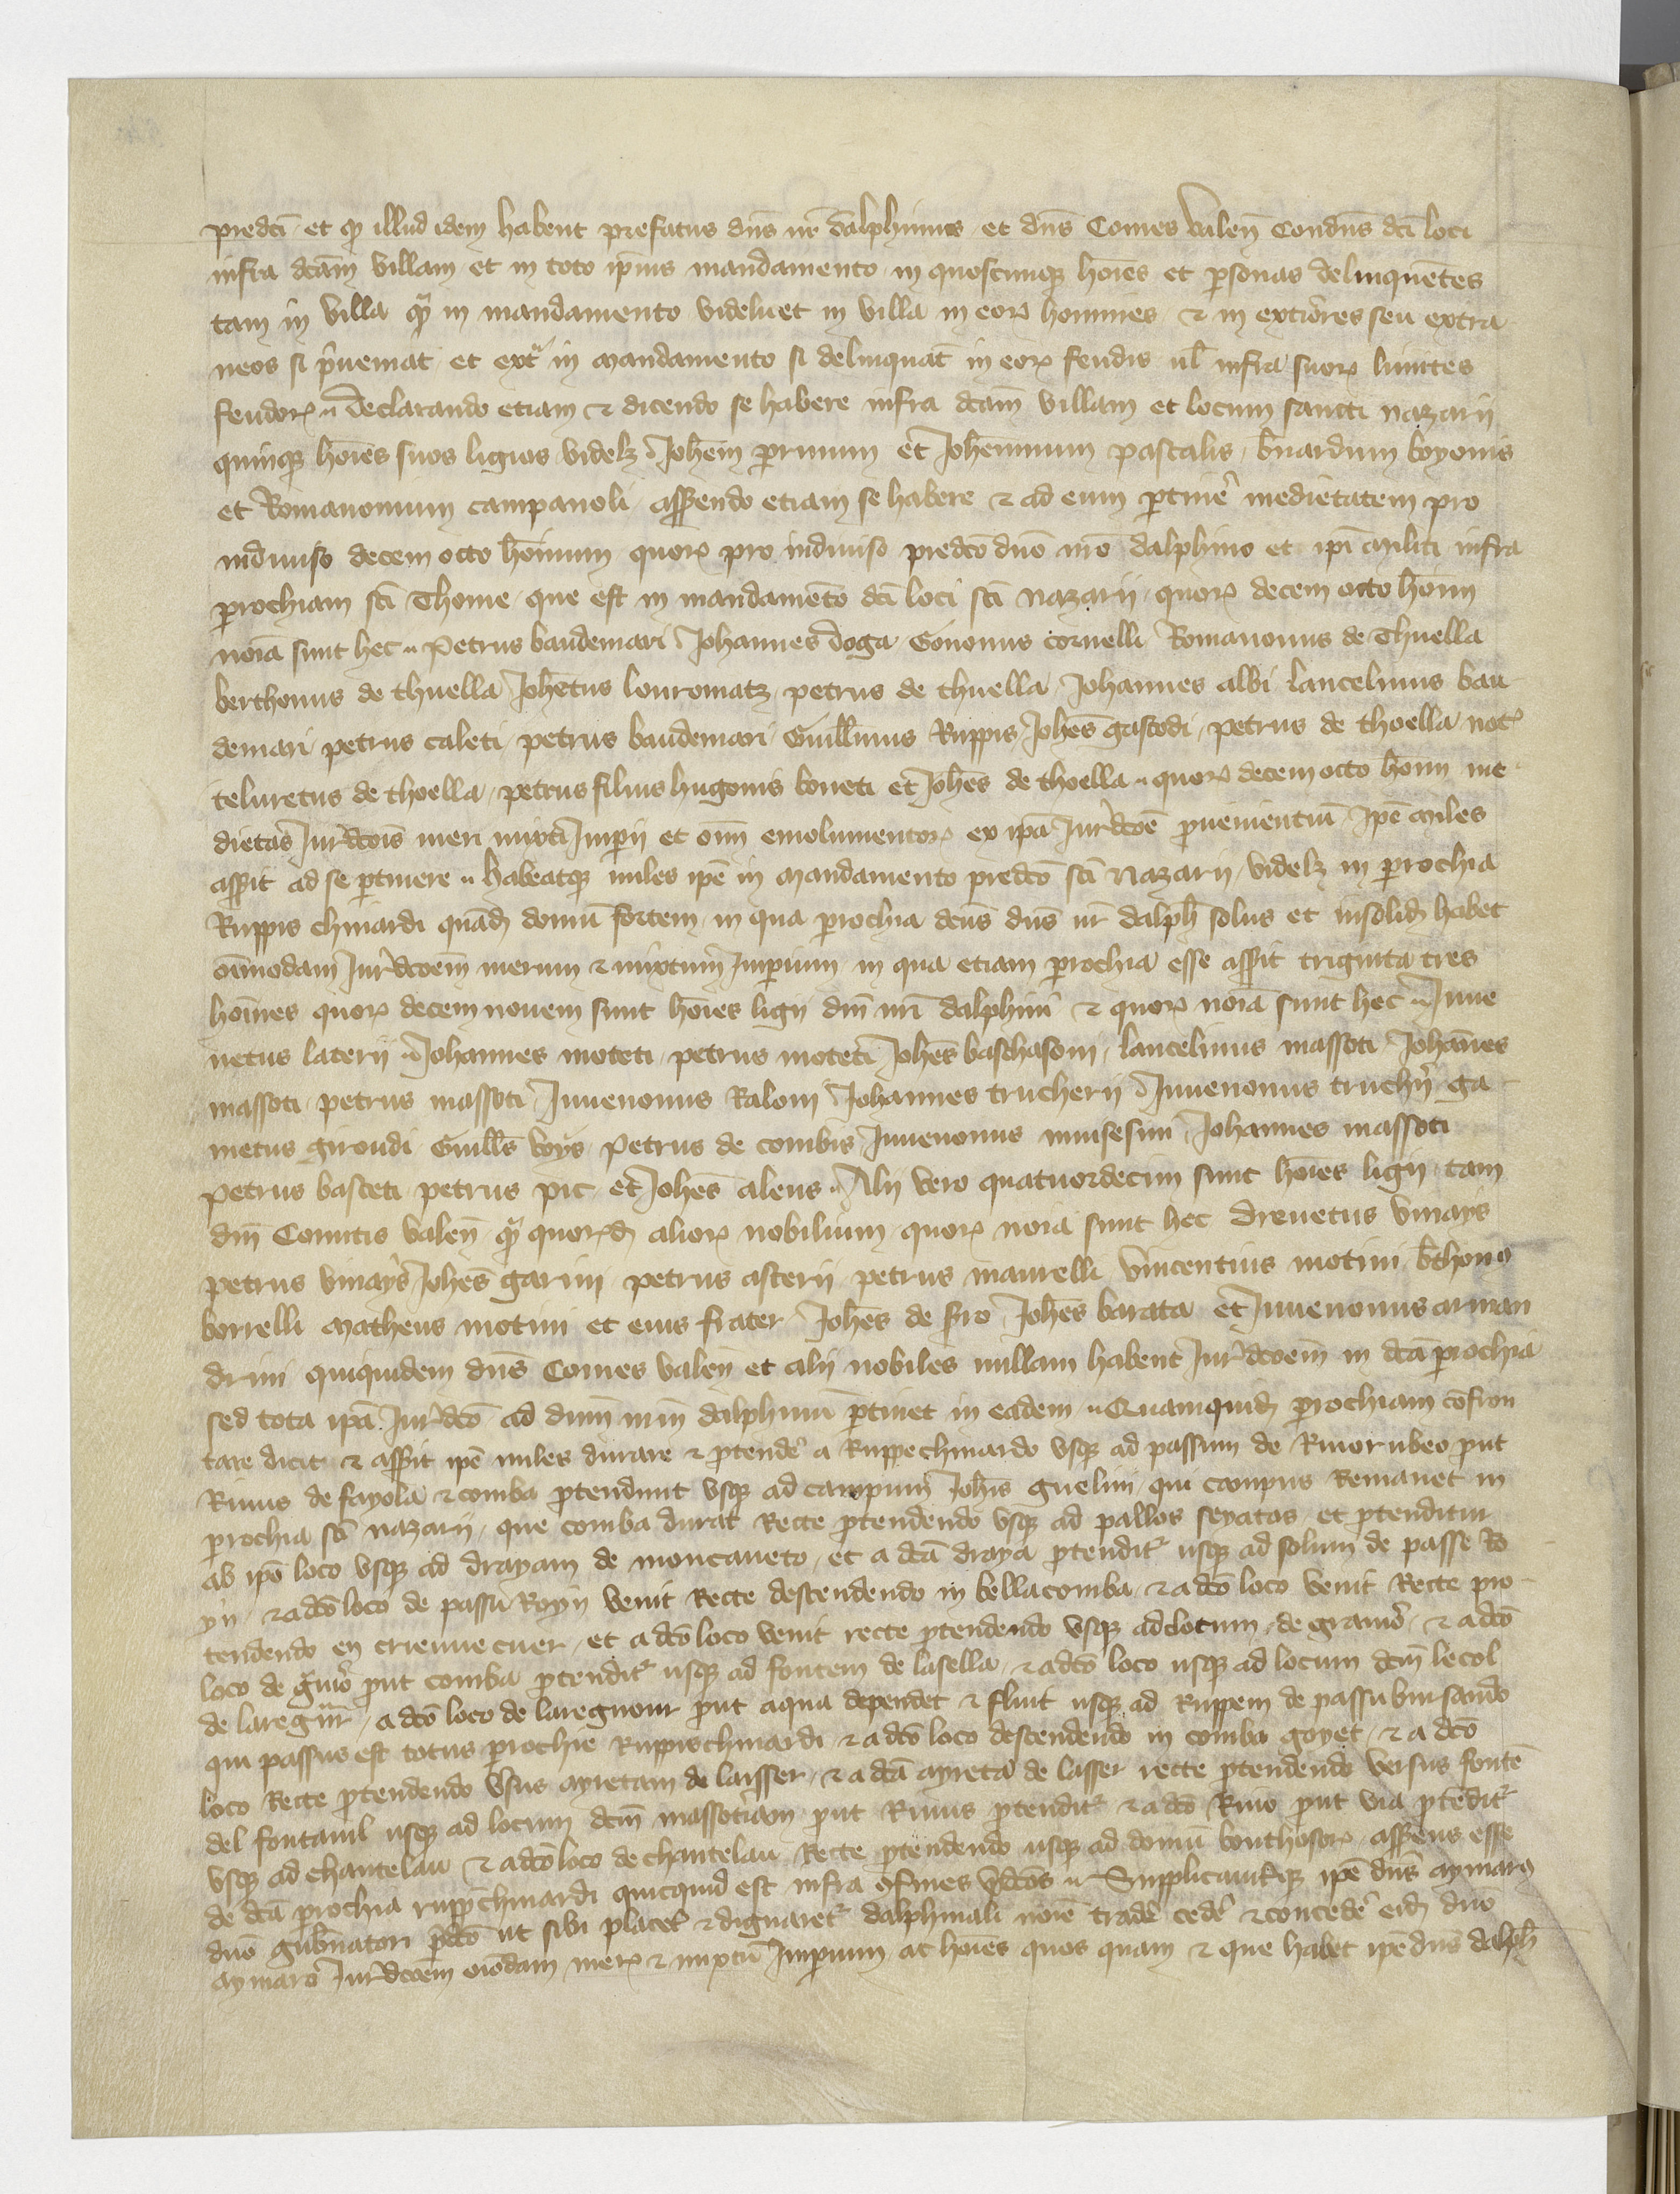 predc̄i et q illud idem habent prefatus dn̄s nr̄ dalphinus et dn̄s Comes valen̄ Condn̄s dc̄i loci
infra dcām villam et in toto ip̄ius mandamento in quoscunq hoīes et p̄sonas delinquentes
tam in villa q̄ in mandamento videlicet in villa in eorꝝ homines ⁊ in extiores seu extra
neos si p̄ueniat et ext̄ in mandamento si delinquāt in eorꝝ feudis ul̄ infra suorꝝ limites
feudorꝝ Declarando etiam ⁊ dicendo se habere infra dcām villam et locum sancti nazarii
quinqꝫ hoīes suos ligios videlꝫ Joh̄em primum et Joh̄eninum pascalis b̄nardum boyonis
et Romanonum campanoli ass̄endo etiam se habere ⁊ ad eum ptinē medietatem pro
indiuiso decem octo hoīnum quorꝝ pro indiuiso predc̄o dn̄o nr̄o dalphino et ip̄i militi infra
prochiam sc̄i Thome que est in mandamento dc̄i loci sc̄i nazarii quorꝝ decem octo hoīm
noīa sunt hec Petrus baudemari Johannes doga Gononus cornelli Romanonus de Thuella
berthonus de thuella Joh̄etus louromatz petrus de thuella Johannes albi lancelinus bau
demari petrus caleti petrus baudemari Guill̄mus Ruppis Joh̄es gascodi petrus de thoella not
teluretus de thoella petrus filius hugonis boueti et Joh̄es de thoella quorꝝ decem octo hoīm me
dietas Jur̄dc̄ois meri mixti Imp̄ii et om̄ emolumentorꝝ ex ip̄a Jur̄dc̄oe p̄uenientiū ip̄e miles
ass̄it ad se ptinere habeatqꝫ miles ip̄e in mandamento predc̄o sc̄i Nazarii videlꝫ in prochia
Ruppis chinardi quād domū fortem in qua prochia dc̄us dn̄s nr̄ dalph̄ solus et insolid habet
oīmodam Jur̄dc̄oem merum ⁊ mixtum Imperium in qua etiam prochia esse ass̄it triginta tres
hoīnes quorꝝ decem nouem sunt hoīes ligii dn̄i nr̄i dalphini ⁊ quorꝝ noīa sunt hec Juue
netus laterii Johannes moteti petrus moteti Joh̄es baschasoni lancelinus massoti Johannes
massoti petrus massoti Juuenonus Raloni Johannes trucherii Juuenonus truch̄ii ga
metus giroudi Guill̄s boys Petrus de combis Juuenonus Johannes massoti
Petrus basteti petrus pic et Joh̄es alens Alii vero quatuordecim sunt hoīes ligii tam
dn̄i Comitis valen̄ q̄ quorꝝd aliorꝝ nobilium quorꝝ noīa sunt hec Dreuetus vinays
petrus vinays Joh̄es garini petrus asterii petrus maurelli vincentius motini b̄thonꝰ
borrelli matheus motini et eius frater Joh̄es de fro Joh̄es barata et Juuenonus arman
drini quiquidem dn̄s Comes valen̄ et alii nobiles nullam habent Jur̄dc̄oem in dc̄a prochia
sed tota ip̄a Jur̄dc̄o ad dnm̄ nr̄m dalphinū ptinet in eadem Quamquid prochiam cōfron
tare dicit ⁊ ass̄it ip̄e miles durare ⁊ ptendē a Ruppechinardo vsqꝫ ad passum de Riuorubeo put
Riuus de fayola ⁊ comba ptendunt vsqꝫ ad campum Joh̄is guelini qui campus Remanet in
prochia sc̄i nazarii que comba durat Recte ptendendo vsqꝫ ad pallos seyatos et ptenditur
ab ip̄o loco vsqꝫ ad drayam de moncaueto et a dc̄a draya ptendit usqꝫ ad solum de passe Ro
yn ⁊ a dc̄o loco de passu Royn venit Recte descendendo in bellacomba ⁊ a dc̄o loco venit Recte pro
tendendo en crieuue cuer et a dc̄o loco venit recte ptendendo vsqꝫ ad locum de granō ⁊ a dc̄o
loco de put comba ptendit usqꝫ ad fontem de lasella ⁊ a dc̄o loco usqꝫ ad locum dc̄m lecol
de laregnir a dc̄o loco de laregnour put aqua dependet ⁊ fluit usqꝫ ad Ruppem de passu
qui passus est totus prochie Ruppischinardi ⁊ a dc̄o loco descendendo in comba goyet ⁊ a dc̄o
loco Recte ptendendo vsus ayretam de laisser ⁊ a dc̄a ayreta de lasser recte ptendendo versus fontē
del fontanil usqꝫ ad locum dc̄m massotiam put Riuus ptendit ⁊ a dc̄o Riuo put via ptēdit
vsqꝫ ad chantelau ⁊ a dc̄o loco de chantelau Recte ptendendo usqꝫ ad domū bonthosorꝝ ass̄ens esse
de dc̄a prochia ruppchinardi quicquid est infra ꝯfines p̄dc̄os Supplicauitqꝫ ip̄e dn̄s aymarꝰ
dn̄o gub̄natori p̄dc̄o ut sibi placet ⁊ dignaret dalphinali noīe tradē cedē ⁊ concedē eid dn̄o
aymaro Jur̄dc̄oem oīodam merꝝ ⁊ mixtū Imperium ac hoīes quos quam ⁊ que habet ip̄e dn̄s dalph̄